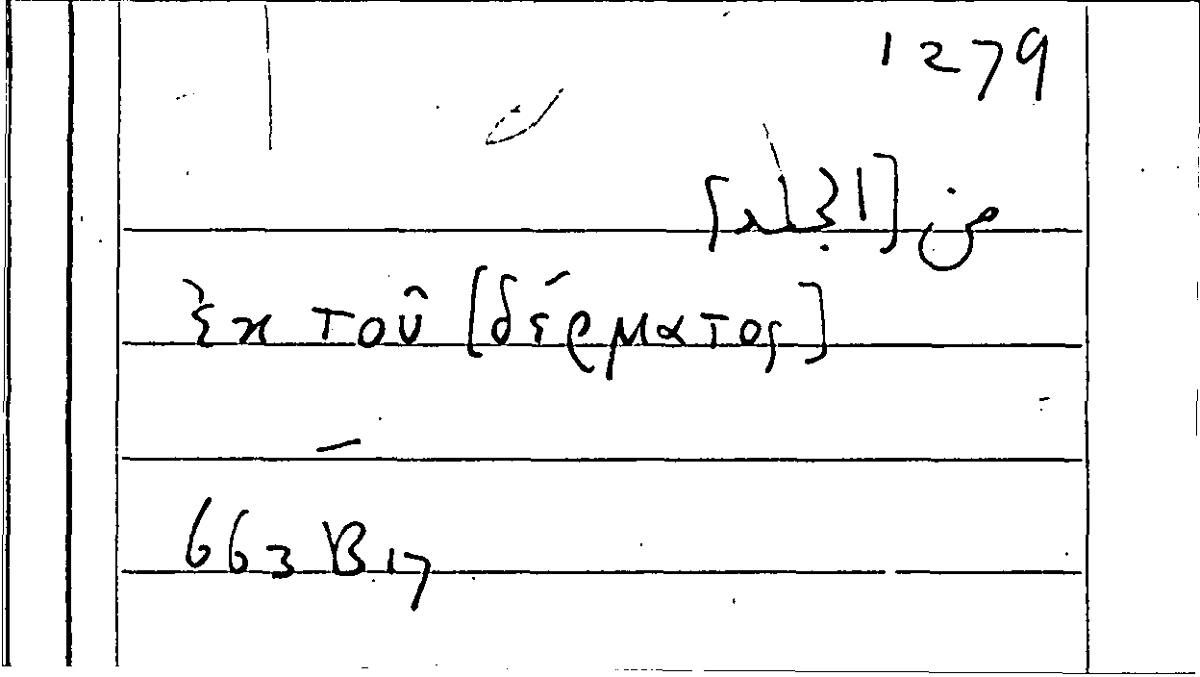 1279
من [الجلد]
ἐκ τοῦ [δέρματος]
663 B 17